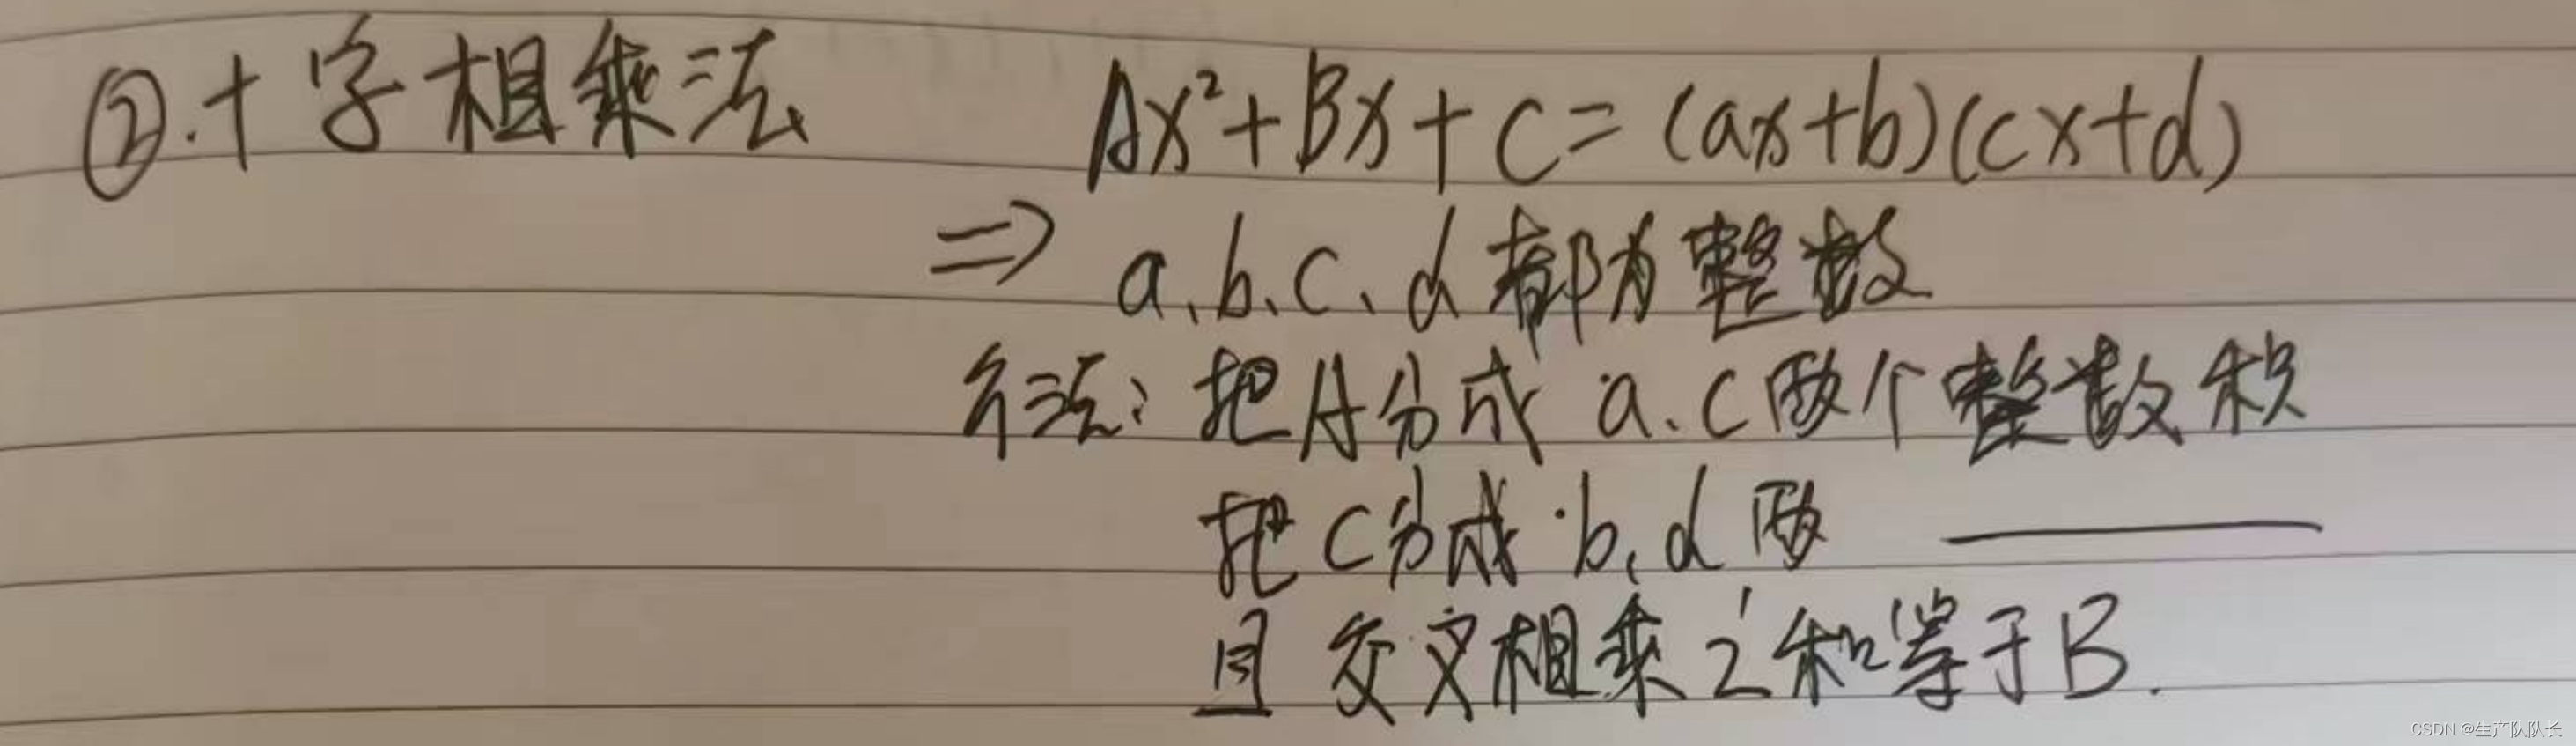 ②.十字相乘法 Ax²+Bx+C=(ax+b)(cx+d)
⇒ a、b、c、d都为整数
方法：把A分成a、c两个整数积
把C分成b、d两 ———
且交叉相乘之和等于B.
CSDN @生产队队长